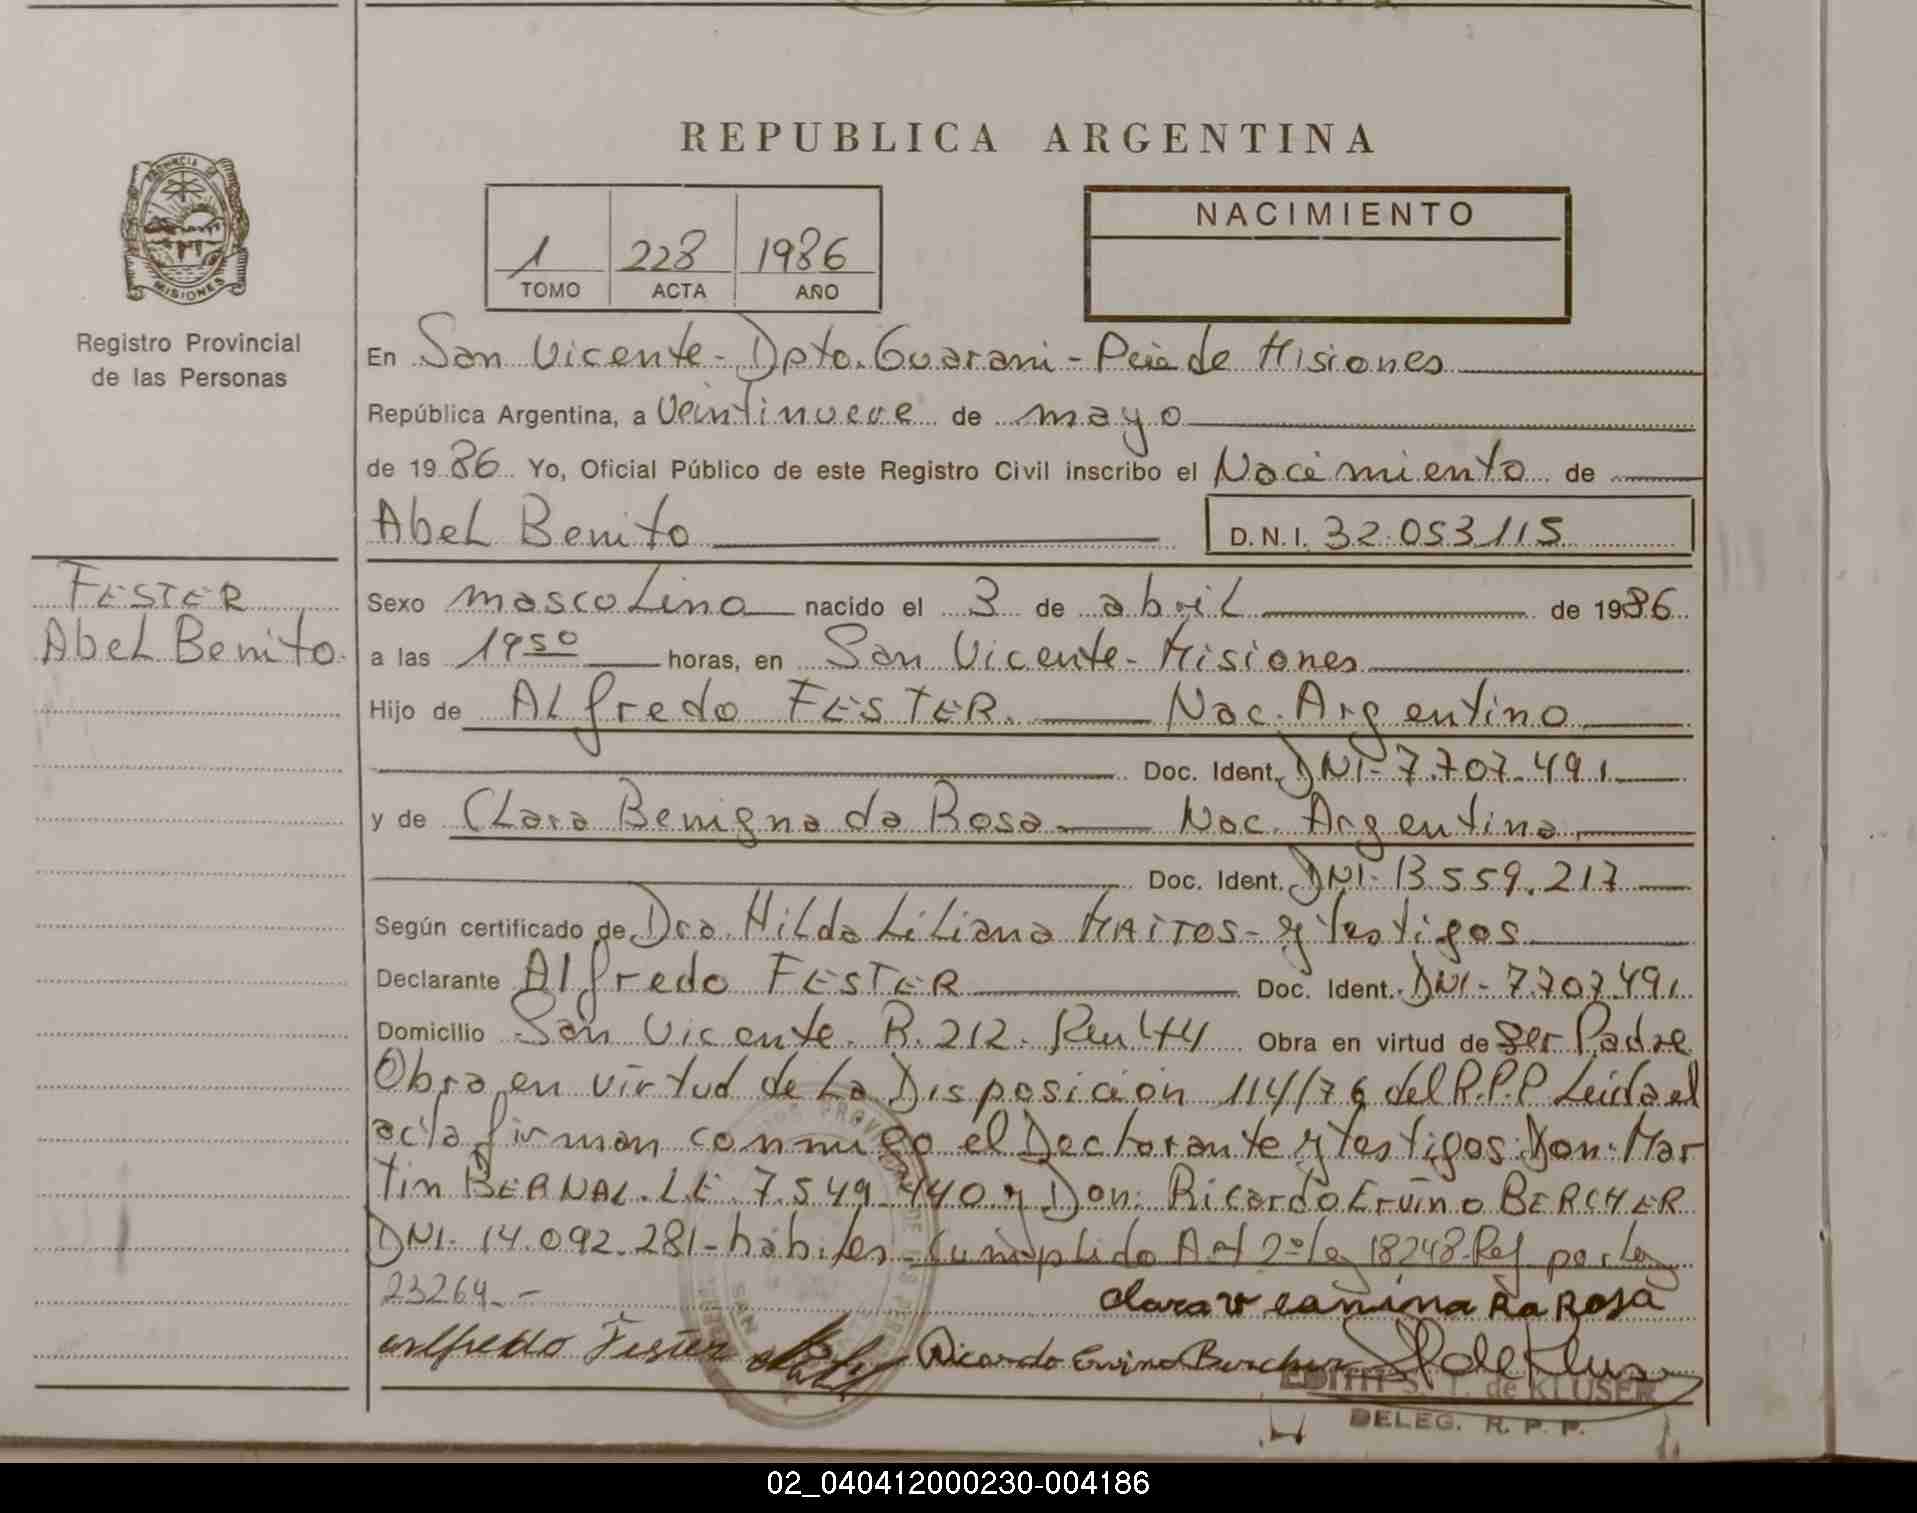 REPUBLICA ARGENTINA
PROVINCIA DE
MISIONES
Registro Provincial
de las Personas
1 228 1986
TOMO ACTA AÑO
NACIMIENTO
En San Vicente - Dpto. Guarani - Pcia de Misiones
República Argentina, a Veintinueve de mayo
de 1986 Yo, Oficial Público de este Registro Civil inscribo el Nacimiento de
Abel Benito D.N.I. 32.053115
FESTER
Abel Benito
Sexo masculino nacido el 3 de abril de 1986
a las 19 50 horas, en San Vicente - Misiones
Hijo de Alfredo FESTER. Nac. Argentino
Doc. Ident. DNI - 7.707.491
y de Clara Benigna da Rosa Nac. Argentina
Doc. Ident. DNI - 13559.217
Según certificado de Dra. Hilda Liliana MATTOS - y testigos
Declarante Alfredo FESTER Doc. Ident. DNI - 7.707.491
Domicilio San Vicente. R. 212. Km 44 Obra en virtud de ser Padre
Obra en virtud de La Disposición 114/76 del R.P.P Leida el
acta firman conmigo el Declarante y testigos: Don: Mar
tin BERNAL. L.E. 7.549.440 y Don: Ricardo Ervino BERCHER
DNI - 14.092.281 - hábiles - Cumplido Art 2º Ley 18248 - Ref por Ley
23264. -
da Rosa
Alfredo Fester Ricardo Ervino Bercher
EDITH S. T. de KLUSER
DELEG. R. P. P.
02_040412000230-004186